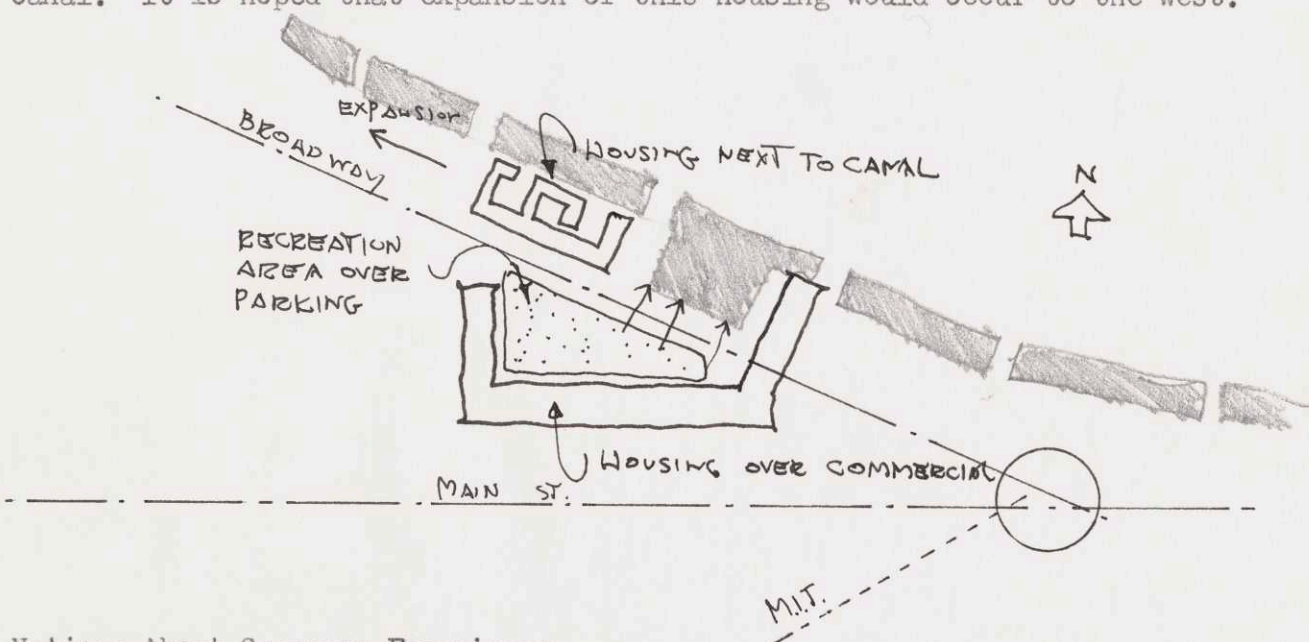 canal. It is hoped that expansion of this housing would occur to the west.
EXPANSION
BROADWAY
HOUSING NEXT TO CANAL
N
RECREATION
AREA OVER
PARKING
HOUSING OVER COMMERCIAL
MAIN ST.
M.I.T.